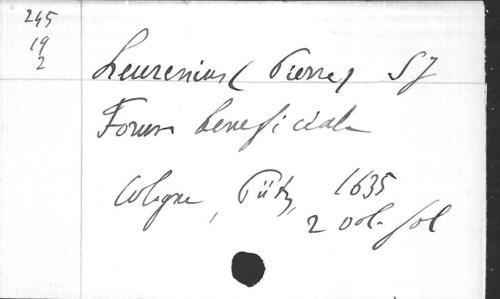 245
19
2
Leurenius (Pierre) SJ
Forum beneficiale
Cologne, Pütz, 1635
2 vol. fol